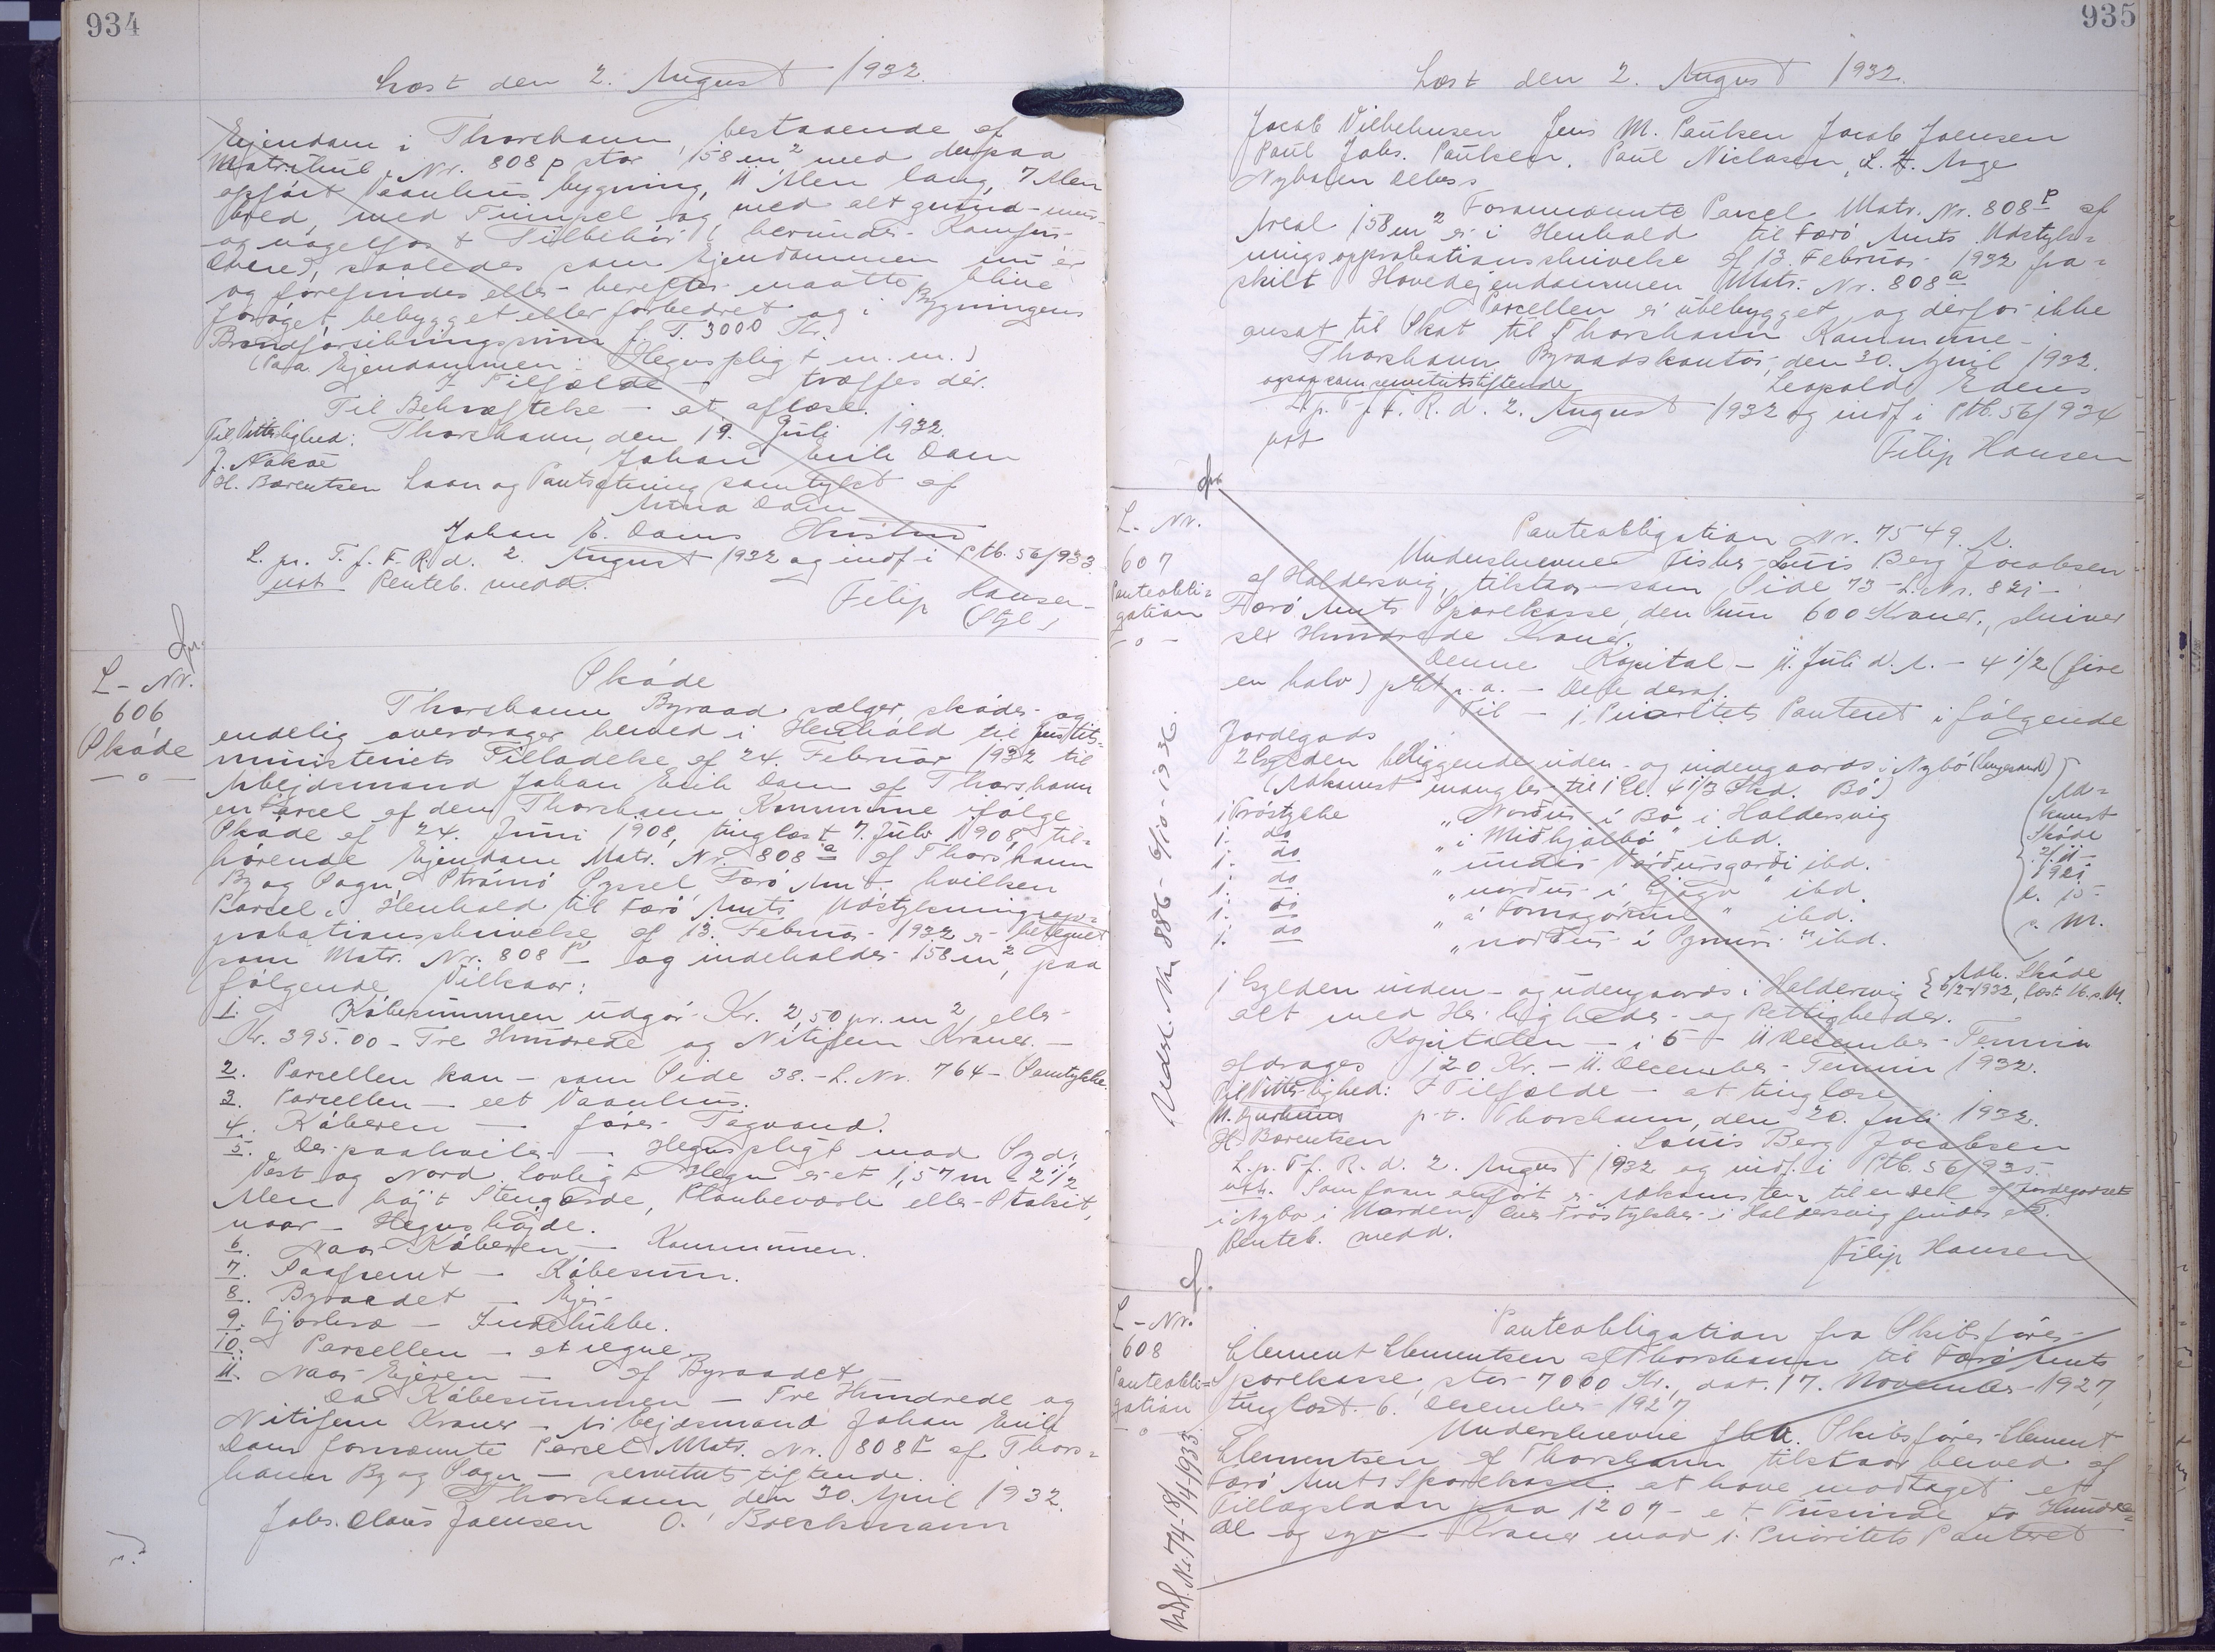 934
Læst den 2. August 1932.
Ejendom i Thorshavn, bestaaende af
Matrikul Nr. 808 p stor 158 m² med derpaa
opført Vaanhusbygning, 11 Alen lang, 7 Alen
bred, med Fimpel og med alt grund- mur-
og nagelfast Tilbehør (herunder Komfur-
Ovne), saaledes som Ejendommen nu er
og forefindes eller herefter maatte blive
forøget, bebygget eller forbedret og i Bygningens
Brandforsikringssum f. T. 3000 Kr.
(Paa Ejendommen: Hegnspligt m. m.)
I Tilfælde — træffes dér.
Til Bekræftelse — at aflæse.
Til Vitterlighed: Thorshavn, den 19. Juli 1932.
J. Nakøe Johan Erik Dam
H. Barentsen Laan og Pantsætning samtykt af
Anna Dam
Johan E. Dams Hustru
L. pr. T. f. F. R. d. 2. August 1932 og indf. i Ptb. 56/933.
not Renteb. medd.
Filip Hansen
(Stgl.)
L - Nr.
606
Skøde
— o —
Skøde
Thorshavn Byraad sælger, skøder og
endelig overdrager herved i Henhold til Justits-
ministeriets Tilladelse af 24. Februar 1932 til
Arbejdsmand Johan Erik Dam af Thorshavn
en Parcel af den Thorshavn Kommune ifølge
Skøde af 24. Juni 1908, tinglæst 7. Juli 1908, til-
hørende Ejendom Matr. Nr. 808 a af Thorshavn
By og Sogn, Strømø Syssel, Færø Amt. hvilken
Parcel i Henhold til Færø Amts Udstykningsap-
probationsskrivelse af 13. Februar 1932 er betegnet
som Matr. Nr. 808 p og indeholder 158 m², paa
følgende Vilkaar:
1. Købesummen udgør Kr. 2,50 pr. m² eller
Kr. 395.00 - Tre Hundrede og Nitifem Kroner. —
2. Parcellen kan — som Side 38. - L. Nr. 764 — Samtykke.
3. Parcellen — eet Vaanhus.
4. Køberen — fører Tagvand.
5. Der paahviler — Hegnspligt mod Syd,
Vest og Nord. Lovligt Hegn er et 1,57 m = 2 1/2
Alen højt Stengærde, Plankeværk eller Stakit,
naar — Hegnshøjde.
6. Naar Køberen — Kommunen.
7. Saafremt — Købesum.
8. Byraadet — Ejer
9. Fjorhræ — Indelukke.
10. Parcellen — at regne.
11. Naar Ejeren — af Byraadet
Da Købesummen — Tre Hundrede og
Nitifem Kroner — Arbejdsmand Johan Erik
Dam fornævnte Parcel Matr. Nr. 808 p af Thors-
havn By og Sogn — servitutstiftende.
Thorshavn den 30. April 1932.
Johs. Claus Joensen O. Boeckmann
935
Læst den 2. August 1932.
Jacob Vilhelmsen Jens M. Paulsen Jacob Joensen
Paul Johs. Paulsen. Paul Niclasen, L. Z. Arge
Nybaen
Fornævnte Parcel Matr. Nr. 808 p af
Areal 158 m² er i Henhold til Færø Amts Udstyk-
ningsapprobationsskrivelse af 13. Februar 1932 fra-
skilt Hovedejendommen Matr. Nr. 808 a
Parcellen er ubebygget og derfor ikke
ansat til Skat til Thorshavn Kommune.
Thorshavn Byraadskontor, den 30. April 1932.
ogsaa som servitutstiftende Leopold Edens
L. p. T. f. F. R. d. 2. August 1932 og indf i Ptb. 56/934
not
Filip Hansen
L - Nr.
607
Panteobli-
gation
— o —
Udsl. Nr. 886 - 6/10 - 1936.
Panteobligation Nr. 7549. A.
Underskrevne Fisker Louis Berg Jacobsen
af Haldersvig, tilstaar — som Side 73 - L. Nr. 821 —
Færø Amts Sparekasse, den Sum 600 Kroner, skriver
sex Hundrede Kroner.
Denne Kapital — 11. Juli d. A. — 4 1/2 (fire
en halv) pCt. p. a. — Dele deraf.
Til — 1. Prioritets Panteret i følgende
Jordegods
2 Gylden beliggende uden- og indengaards i Nybø (Langesand)
(Adkomst mangler til 1 Gl. 4 1/3 Skd. Bø)
1 Trøstykke „Norður í Bø" i Haldersvig
1. do „í Miðhjálbø" ibd.
1. do „undir Vørðursgarði ibd.
1. do „norður í Gjógv" ibd.
1. do „á Fornagørðum" ibd.
1. do „norður í ibd.
Ad-
komst
Skøde
2/11-
1921
l. 15
s. M.
1 Gylden inden- og udengaards i Haldersvig { Adk. Skøde
6/2-1932, læst 16. s. M.
alt med Herligheder og Rettigheder.
Kapitalen — i 5 - 11 December Termin
afdrages 120 Kr. — 11. December Termin 1932.
Til Vitterlighed: I Tilfælde — at tinglæse.
p. t. Thorshavn, den 20. Juli 1932.
H. Barentsen Louis Berg Jacobsen
L. p. T. f. R. d. 2. August 1932 og indf. i Ptb. 56/935.
Som foran anført er Adkomsten til en Del af Jordegodset
i Nybø i Orden. Over Trøstykker i Haldersvig findes ej.
Renteb. medd.
Filip Hansen
L - Nr.
608
Panteobli-
gation
— o —
Udsl. Nr. 74 - 18/1 - 1935.
Panteobligation fra Skibsfører
Clement Clementsen af Thorshavn til Færø Amts
Sparekasse, stor 7000 Kr., dat. 17. November 1927,
tinglæst 6. December 1927.
Underskrevne Skibsfører Clement
Clementsen af Thorshavn tilstaar herved af
Færø Amts Sparekasse at have modtaget et
Tillægslaan paa 1207 - et Tusinde to Hundre-
de og syv — Kroner mod 1. Prioritets Panteret